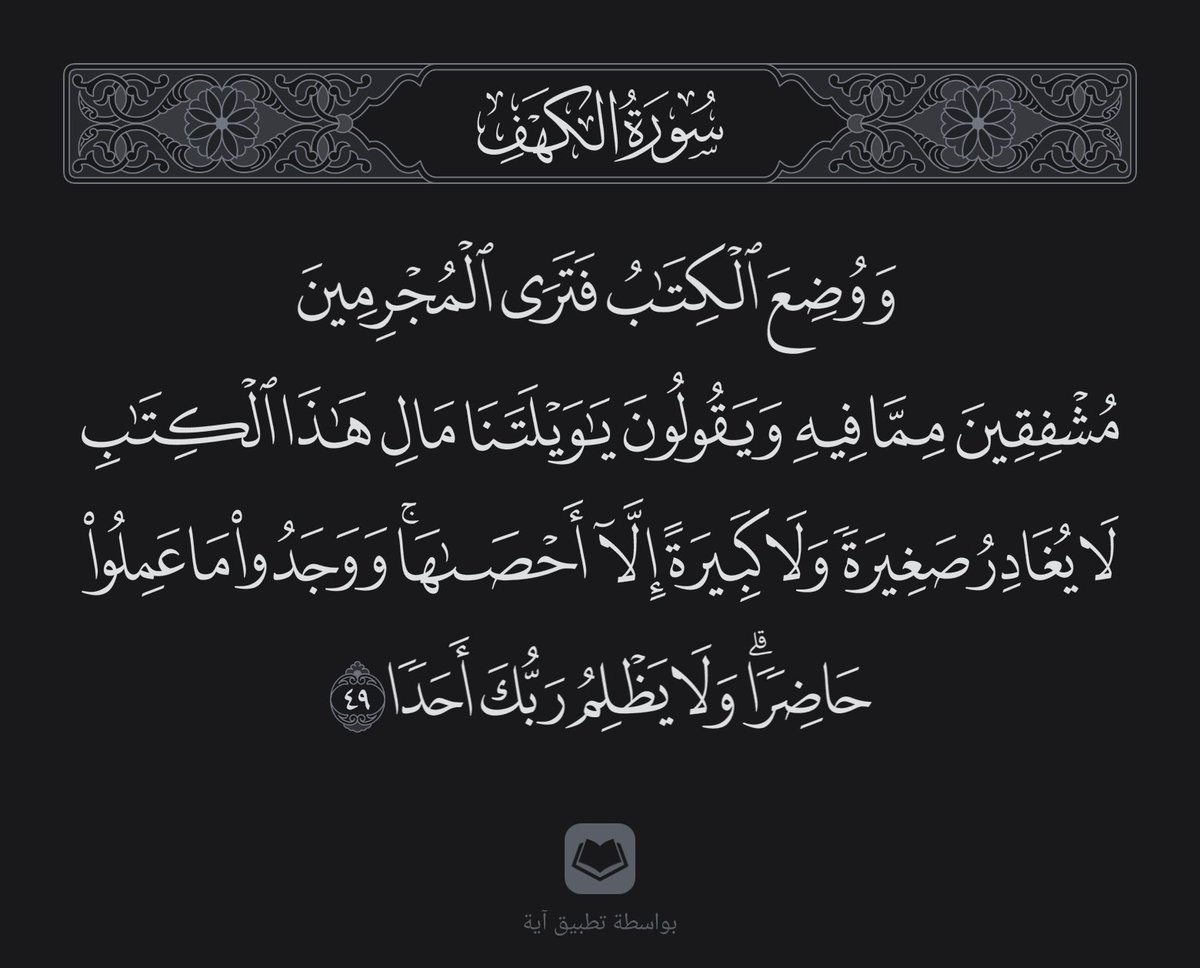 سُورَةُ الكَهفِ
وَوُضِعَ ٱلْكِتَٰبُ فَتَرَى ٱلْمُجْرِمِينَ
مُشْفِقِينَ مِمَّا فِيهِ وَيَقُولُونَ يَٰوَيْلَتَنَا مَالِ هَٰذَا ٱلْكِتَٰبِ
لَا يُغَادِرُ صَغِيرَةٗ وَلَا كَبِيرَةً إِلَّآ أَحْصَىٰهَاۚ وَوَجَدُواْ مَا عَمِلُواْ
حَاضِرٗاۗ وَلَا يَظْلِمُ رَبُّكَ أَحَدٗا ٤٩
بواسطة تطبيق آية